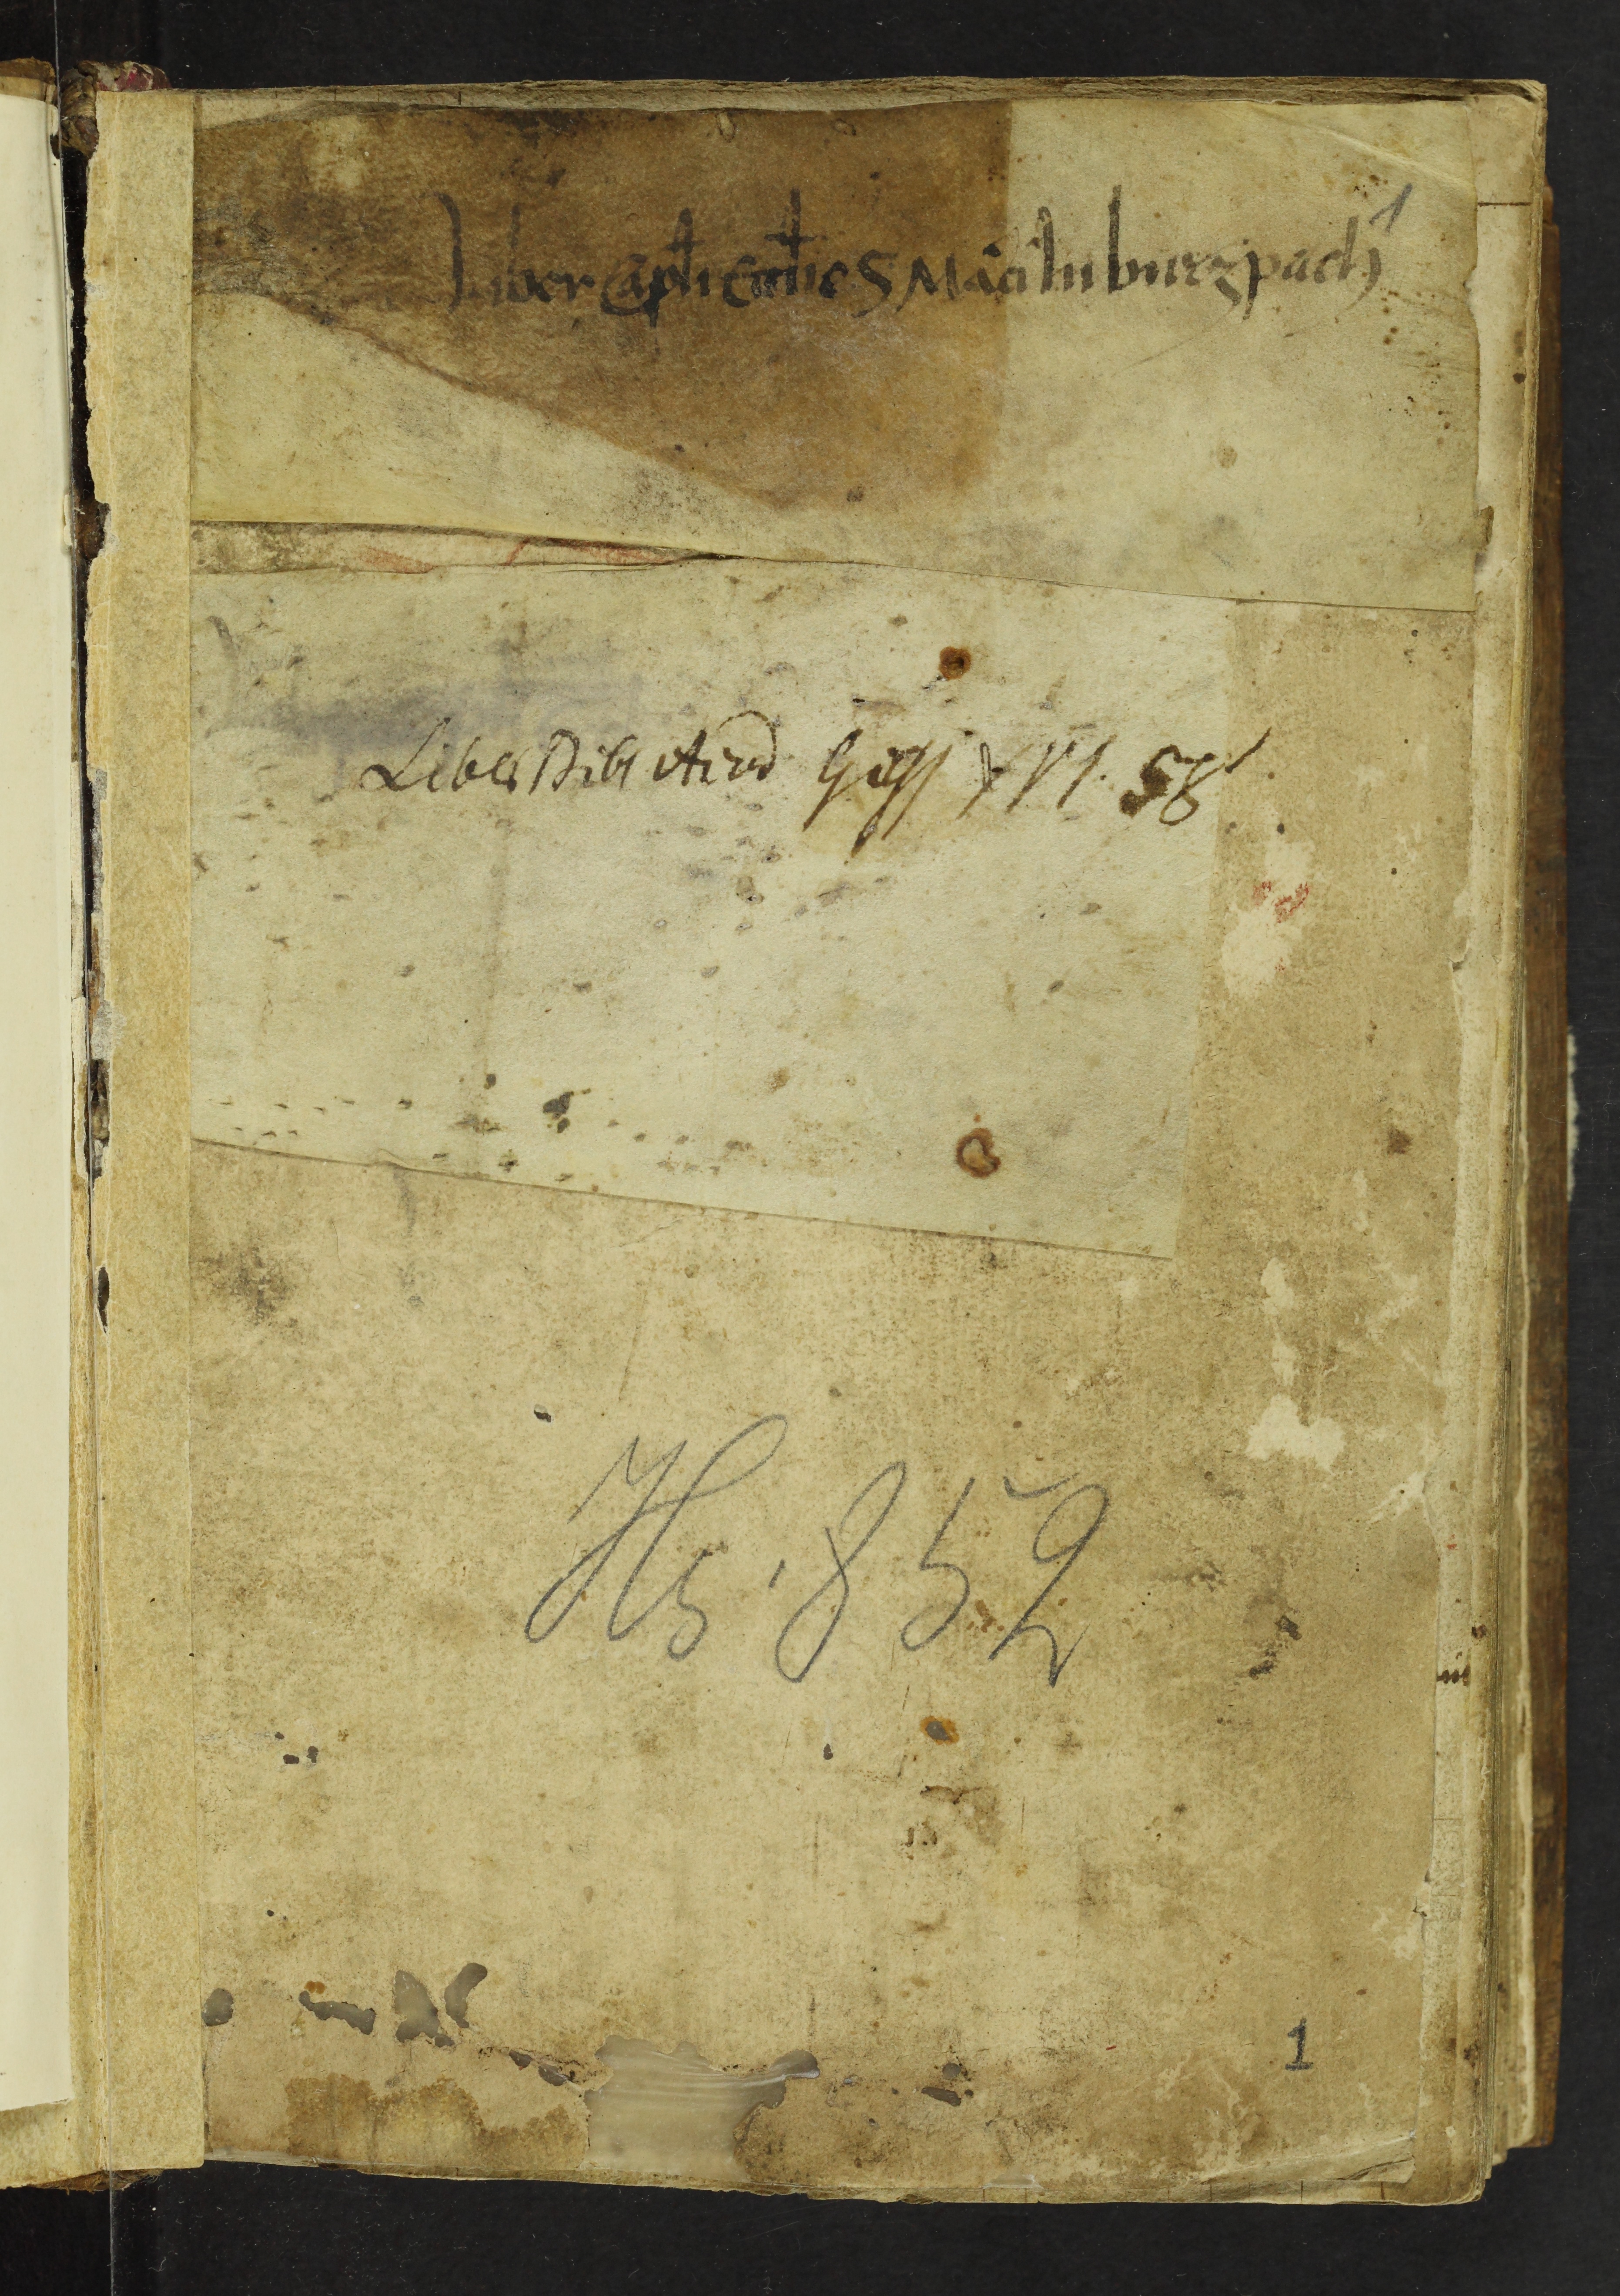 Liber Capli Eccl̄ie S Martini burgpach 1
Liber Bibl Acad Giess XVI. 58
Hs. 852
1